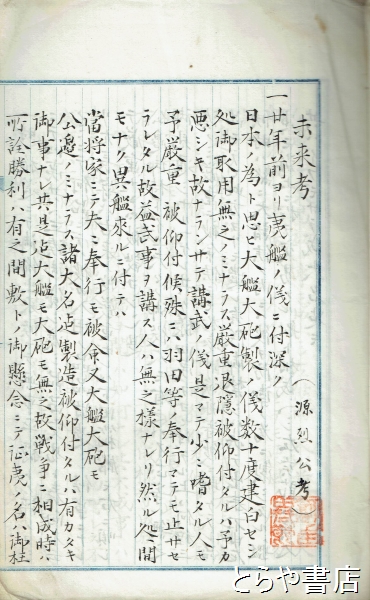 未来考
（源烈公考）
一廿年前ヨリ夷艦ノ儀ニ付深ク
日本ノ為ト思ヒ大艦大砲製ノ儀数十度建白セシ
処御取用無之ノミナラス厳重退隠被仰付タルハ予カ
悪シキ故ナランサテ講武ノ儀是マテ少ニ嗜タル人モ
予厳重被仰付候殊ニハ羽田等奉行マテモ止サセ
ラレタル故益武事ヲ講ス人ハ無之様ナレリ然ル処ニ間
モナク異艦来ルニ付テハ
当将家ニテ夫ニ奉行モ被命又大艦大砲モ
公邊ノミナラス諸大名迠製造被仰付タルハ有カタキ
御事ナレ共是迠大艦モ大砲モ無之故戦争ニ相成時ハ
所詮勝利ハ有之間敷トノ御懸念ニテ征夷ノ名ハ御柱
とらや書店